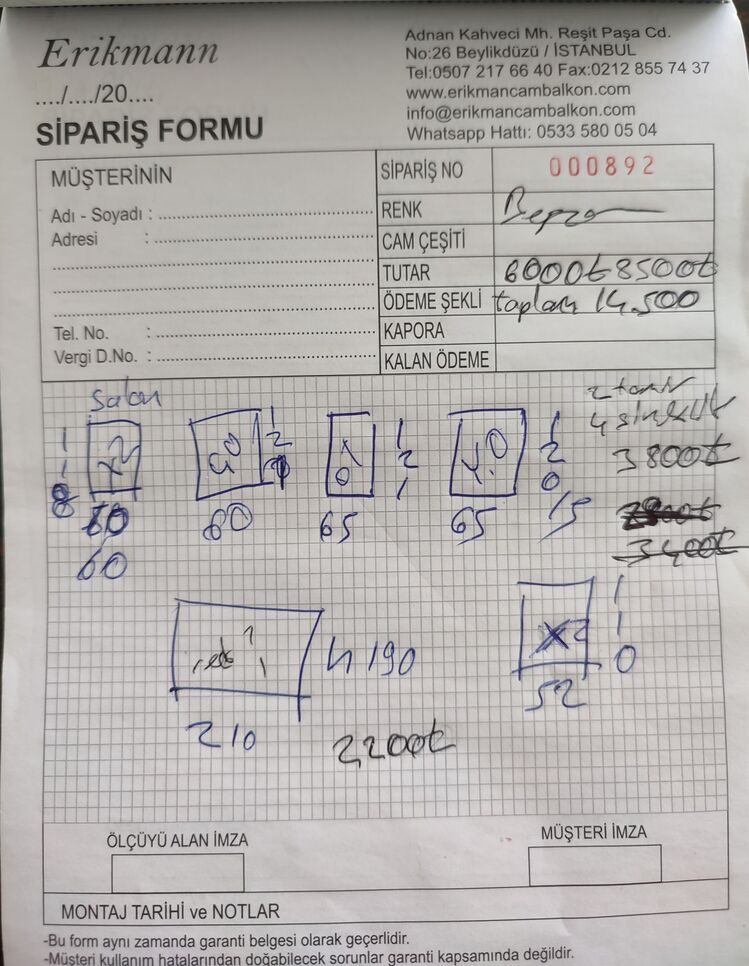 Erikmann
Adnan Kahveci Mh. Reşit Paşa Cd.
No:26 Beylikdüzü / İSTANBUL
Tel:0507 217 66 40 Fax:0212 855 74 37
www.erikmancambalkon.com
info@erikmancambalkon.com
Whatsapp Hattı: 0533 580 05 04
..../..../20....
SİPARİŞ FORMU
MÜŞTERİNİN
Adı - Soyadı :
Adresi :
Tel. No. :
Vergi D.No. :
SİPARİŞ NO 000892
RENK
CAM ÇEŞİTİ
TUTAR 6000₺ 8500₺
ÖDEME ŞEKLİ toplam 14.500
KAPORA
KALAN ÖDEME
Salon
4 sineklik
3800₺
3400₺
60 65 65 15
60
h 190
210
2200₺
110
52
ÖLÇÜYÜ ALAN İMZA
MÜŞTERİ İMZA
MONTAJ TARİHİ ve NOTLAR
-Bu form aynı zamanda garanti belgesi olarak geçerlidir.
-Müşteri kullanım hatalarından doğabilecek sorunlar garanti kapsamında değildir.